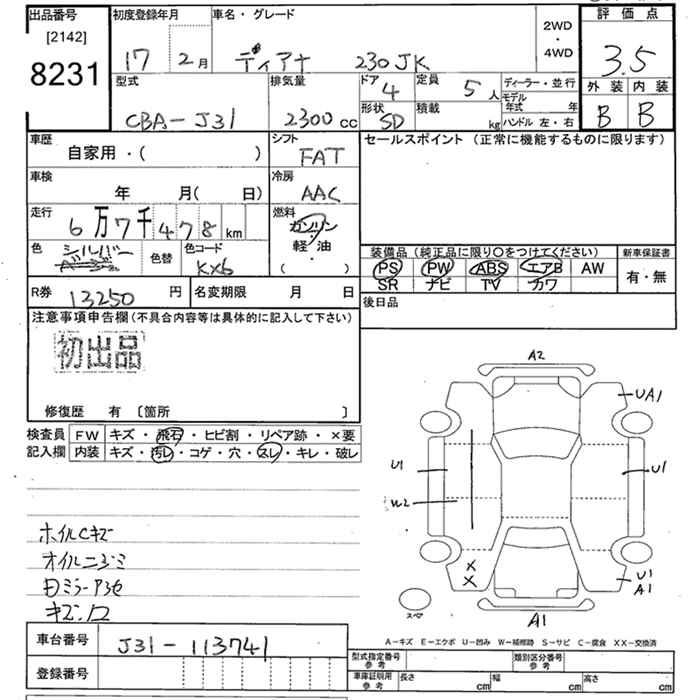 出品番号
[2142]
8231
初度登録年月
17 2月
車名・グレード
ディアナ 230JK
2WD
・
4WD
評価点
3.5
外装 内装
B B
型式
CBA-J31
排気量
2300cc
ドア
4
定員
5人
形状
SD
積載
kg
ディーラー・並行
モデル年式 年
ハンドル 左・右
車歴
自家用・( )
シフト
FAT
車検
年 月( 日)
冷房
AAC
走行
6万7千478km
燃料
ガソリン
・
軽・油
( )
色
シルバー
色替
色コード
KX6
セールスポイント(正常に機能するものに限ります)
装備品(純正品に限り○をつけてください)
PS PW ABS エアB AW
SR ナビ TV カワ
新車保証書
有・無
R券
13250円
名変期限 月 日
後日品
注意事項申告欄(不具合内容等は具体的に記入して下さい)
初出品
修復歴 有 [箇所 ]
検査員
記入欄
FW キズ・飛石・ヒビ割・リペア跡・×要
内装 キズ・汚レ・コゲ・穴・スレ・キレ・破レ
ホイルCキズ
オイルニジミ
A2
UA1
U1
U1
W2
X
X
U1
A1
A1
スペア
A-キズ E-エクボ U-凹み W-補修跡 S-サビ C-腐食 XX-交換済
車台番号
J31-113741
登録番号
型式指定番号
参考
類別区分番号
参考
車庫証明用
参考
長さ cm
幅 cm
高さ cm